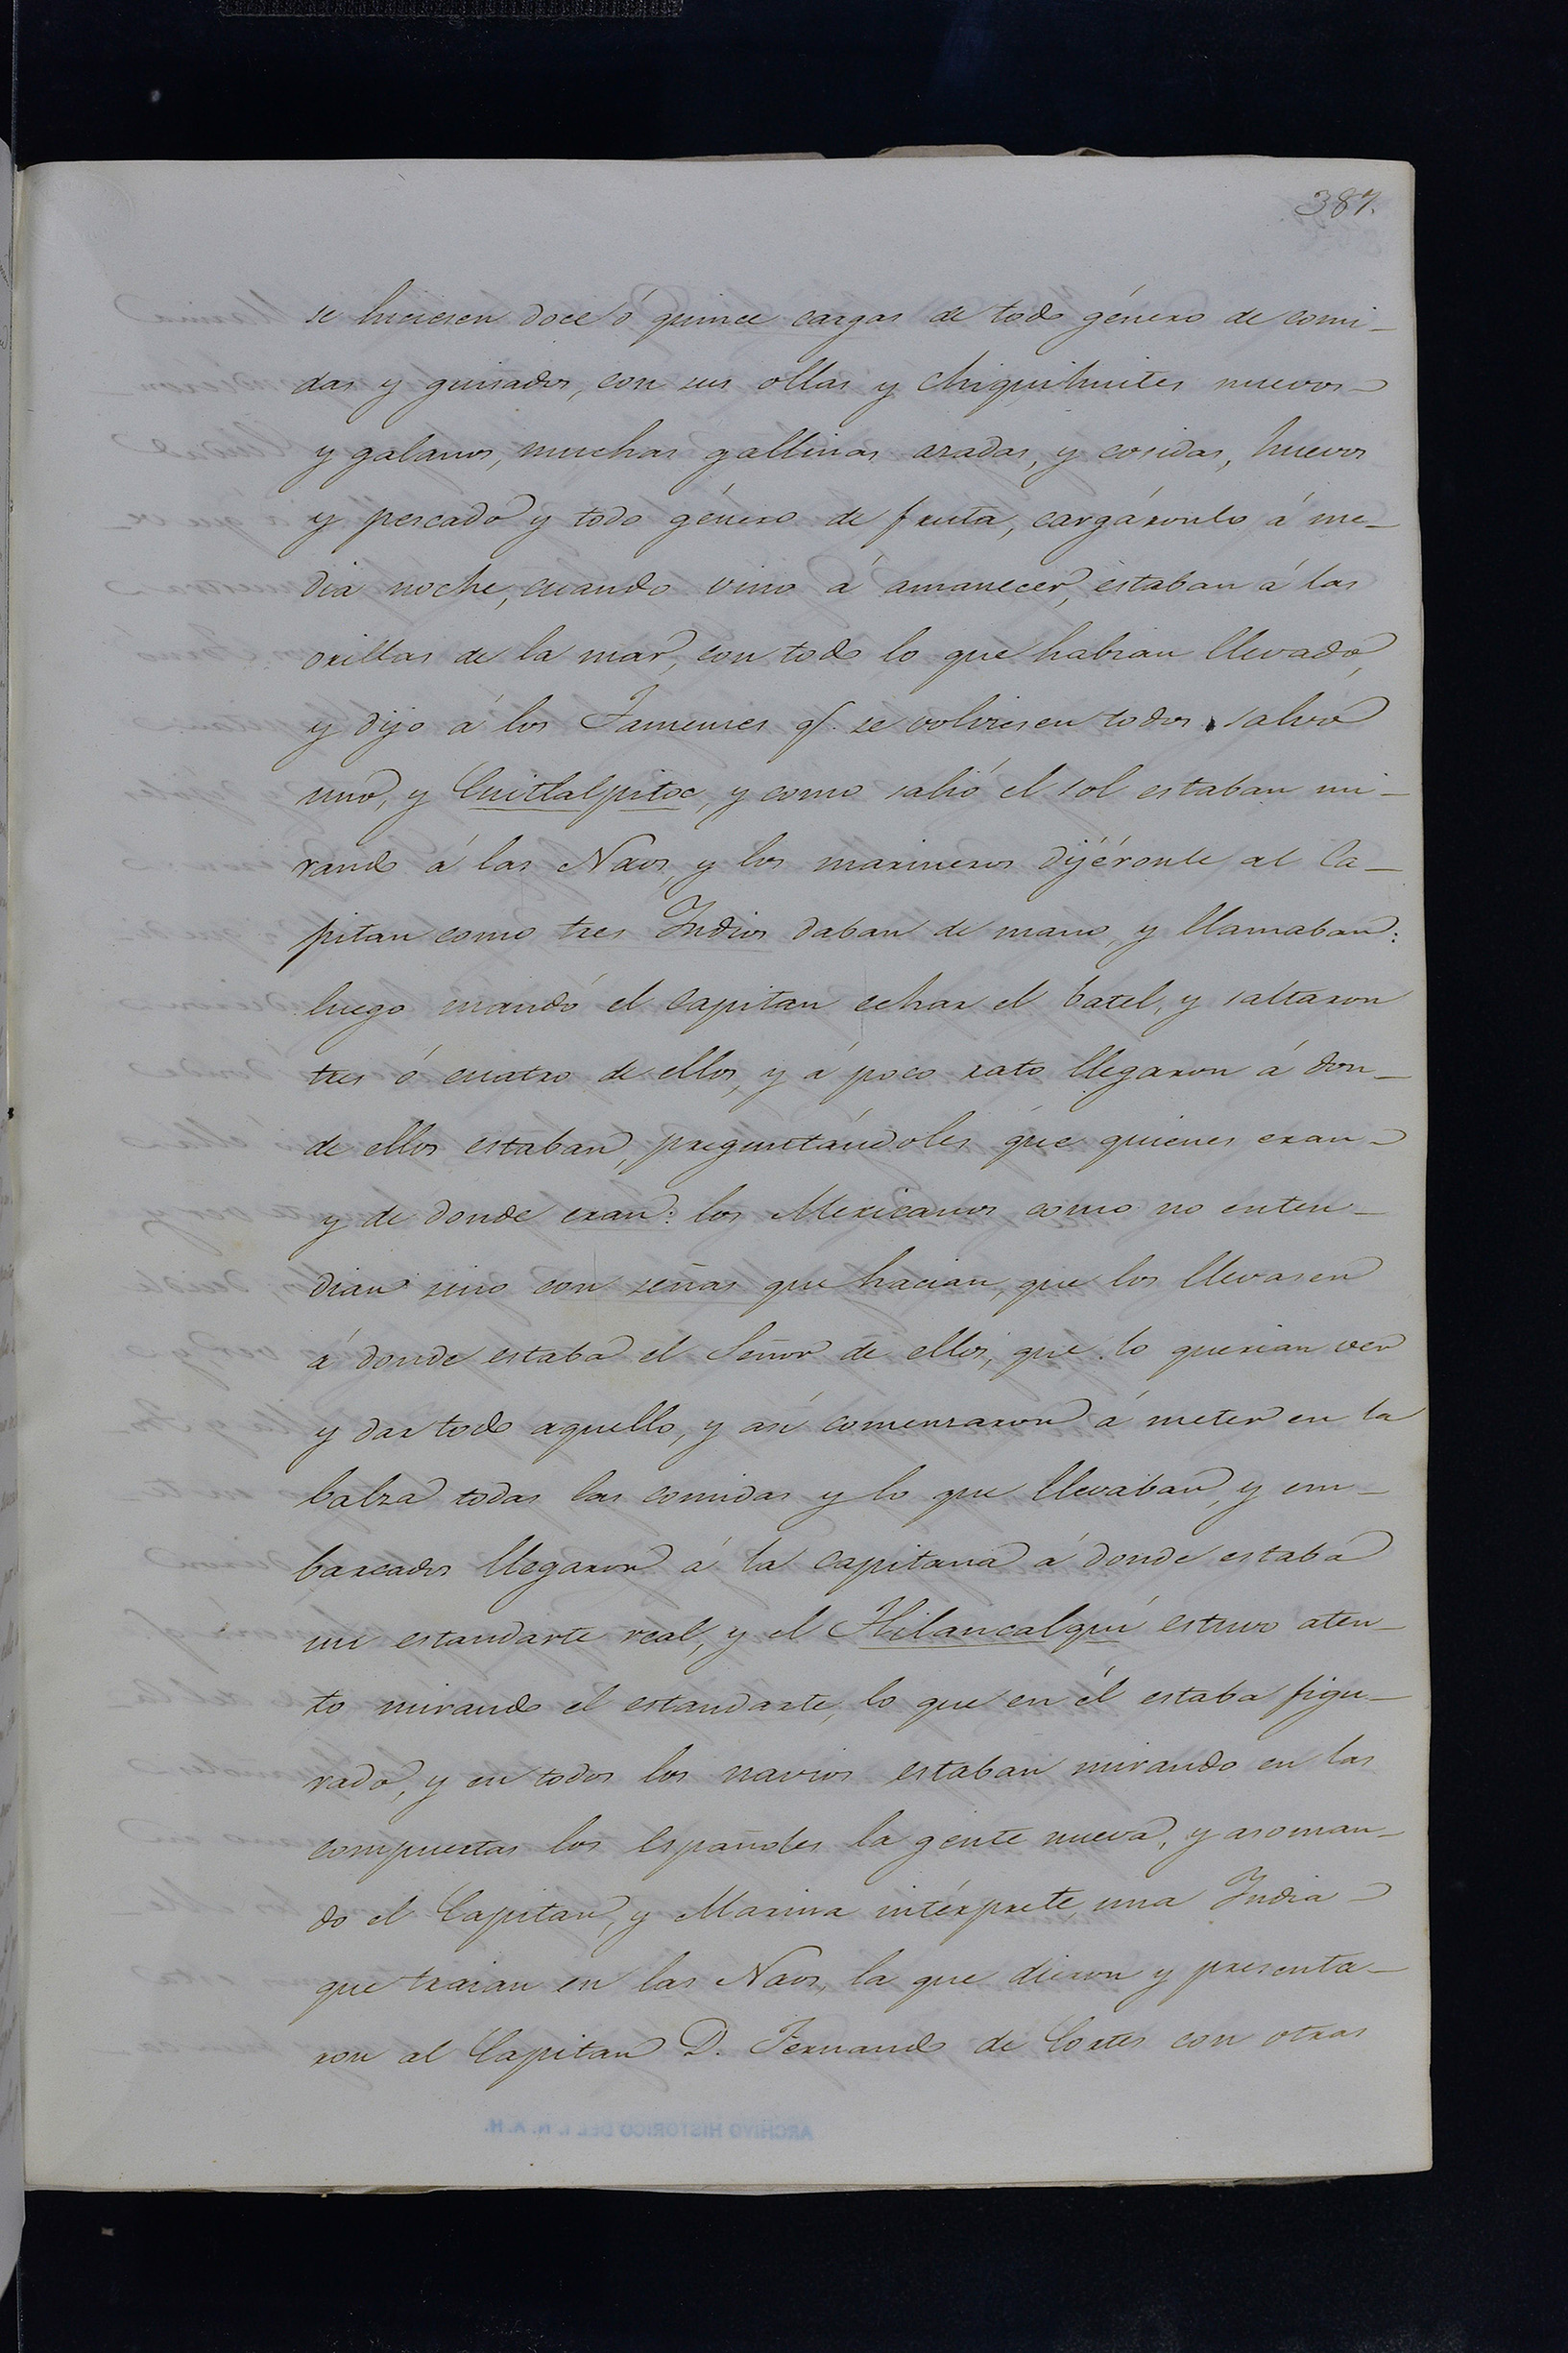 387.
se hiciesen doce ó quince cargas de todo género de comi-
das y guisados, con sus ollas y chiquihuites nuevos
y galanos, muchas gallinas azadas, y cosidas, huevos
y pescado y todo género de fruta, cargáronlo á me-
dia noche, cuando vino á amanecer, estaban á las
orillas de la mar, con todo lo que habian llevado,
y dijo á los Tamemes q.e se volviesen todos, salvo
uno, y Cuitlalpitoc, y como salió el sol estaban mi-
rando á las Naos, y los marineros dijéronle al Ca-
pitan como tres Indios daban de mano, y llamaban:
luego mandó el Capitan echar el batel, y saltaron
tres ó cuatro de ellos, y á poco rato llegaron á don-
de ellos estaban, preguntándoles que quienes eran
y de donde eran: los Mexicanos como no enten-
dian sino con señas que hacian, que los llevasen
á donde estaba el Señor de ellos, que lo querian ver
y dar todo aquello, y asi comenzaron á meter en la
balza todas las comidas y lo que llevaban, y em-
barcados llegaron á la Capitana á donde estaba
un estandarte real, y el Tlilancalqui estuvo aten-
to mirando el estandarte, lo que en él estaba figu-
rado, y en todos los navios estaban mirando en las
compuertas los Españoles la gente nueva, y asoman-
do el Capitan, y Marina intérprete, una India
que traian en las Naos, la que dieron y presenta-
ron al Capitan D. Fernando de Cortes con otras
ARCHIVO HISTORICO DEL I. N. A. H.